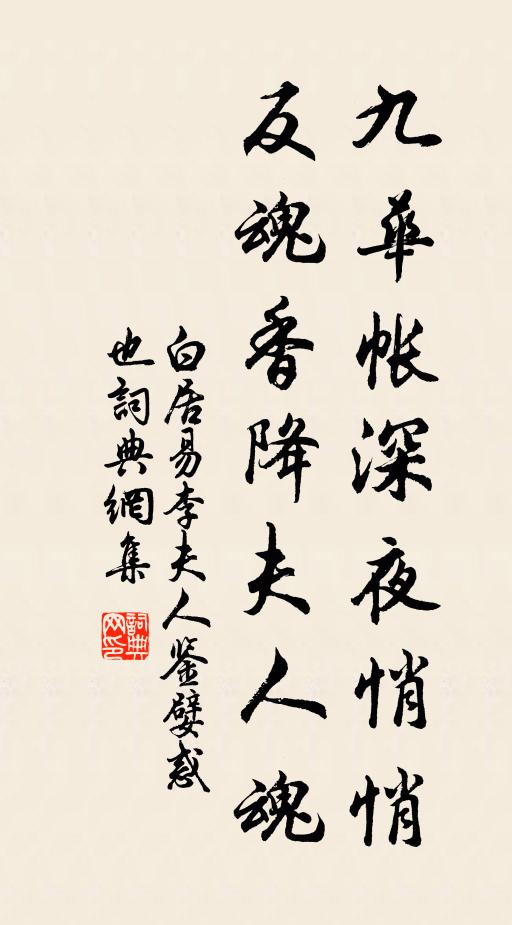 九華帐深夜悄悄
反魂香降夫人魂
白居易李夫人鉴嬖惑
也詞典網集
詞典网印